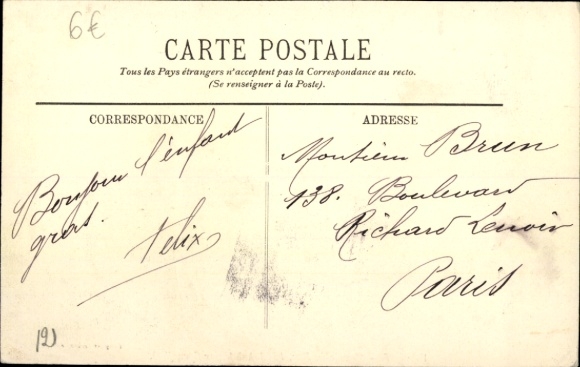 6€
CARTE POSTALE
Tous les Pays étrangers n'acceptent pas la Correspondance au recto.
(Se renseigner à la Poste).
CORRESPONDANCE
Bonjour l'enfant
gras.
Felix
ADRESSE
Monsieur Brun
138. Boulevard
Richard Lenoir
Paris